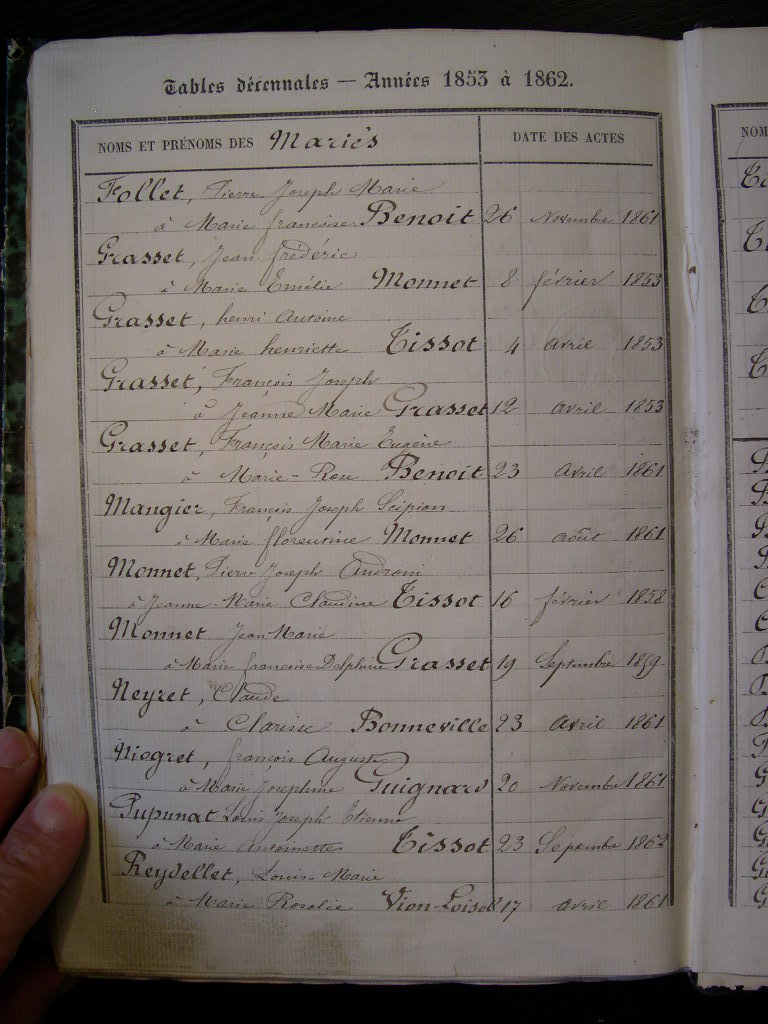 Tables décennales — Années 1853 à 1862.
NOMS ET PRÉNOMS DES Mariés DATE DES ACTES
Follet, Pierre Joseph Marie
à Marie françoise Benoit 26 Novembre 1861
Grasset, Jean frédéric
à Marie Emélie Monnet 8 février 1853
Grasset, henri Antoine
à Marie henriette Tissot 4 Avril 1853
Grasset, François Joseph
à Jeanne Marie Grasset 12 avril 1853
Grasset, François Marie Eugène
à Marie-Rose Benoit 23 Avril 1861
Mangier, François Joseph Scipion
à Marie florentine Monnet 26 août 1861
Monnet, Pierre Joseph
à Jeanne-Marie Claudine Tissot 16 février 1858
Monnet Jean Marie
à Marie françoise Delphine Grasset 19 Septembre 1859
Neyret, Claude
à Clarisse Bonneville 23 Avril 1861
Niogret, françois Auguste
à Marie Josephine Guignard 20 Novembre 1861
Pupunat Louis Joseph Etienne
à Marie Antoinette Tissot 23 Septembre 1862
Reydellet, Louis-Marie
à Marie Rosalie Vion-Loisel 17 avril 1861
NOM